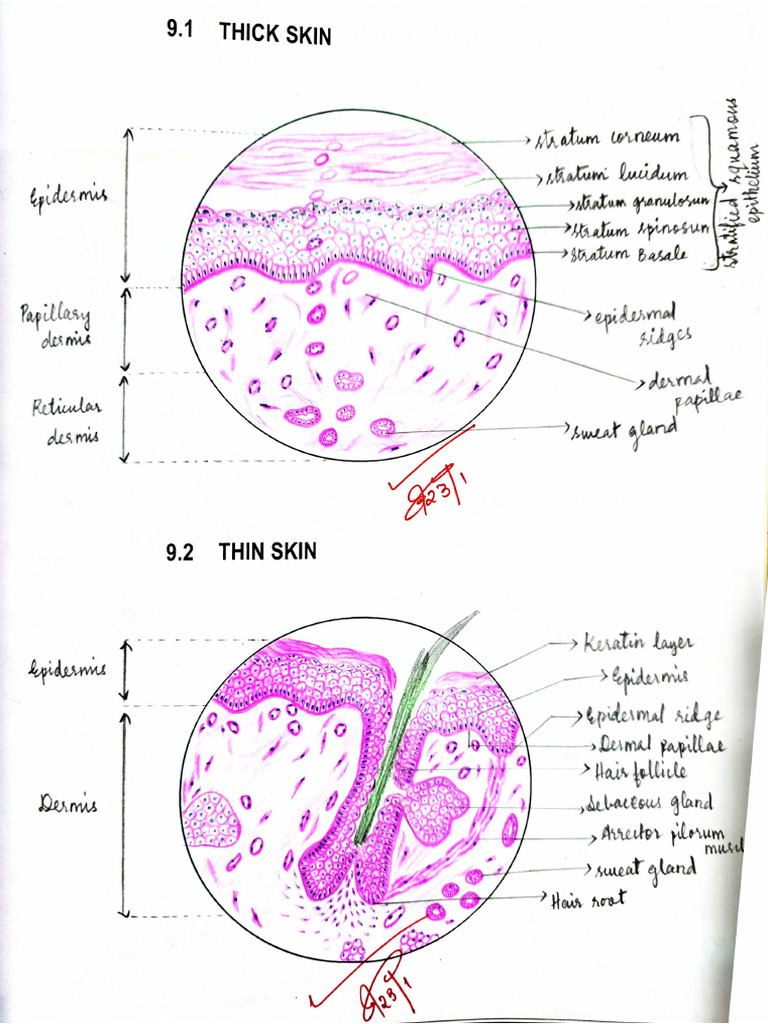 9.1 THICK SKIN
Epidermis
Papillary
dermis
Reticular
dermis
stratum corneum
stratum lucidum
stratum granulosum
stratum spinosum
stratum Basale
stratified squamous
epithelium
epidermal
ridges
dermal
papillae
sweat gland
23/1
9.2 THIN SKIN
Epidermis
Dermis
Keratin layer
Epidermis
Epidermal ridge
Dermal papillae
Hair follicle
Sebaceous gland
Arrector pilorum
muscl
sweat gland
Hair root
23/1